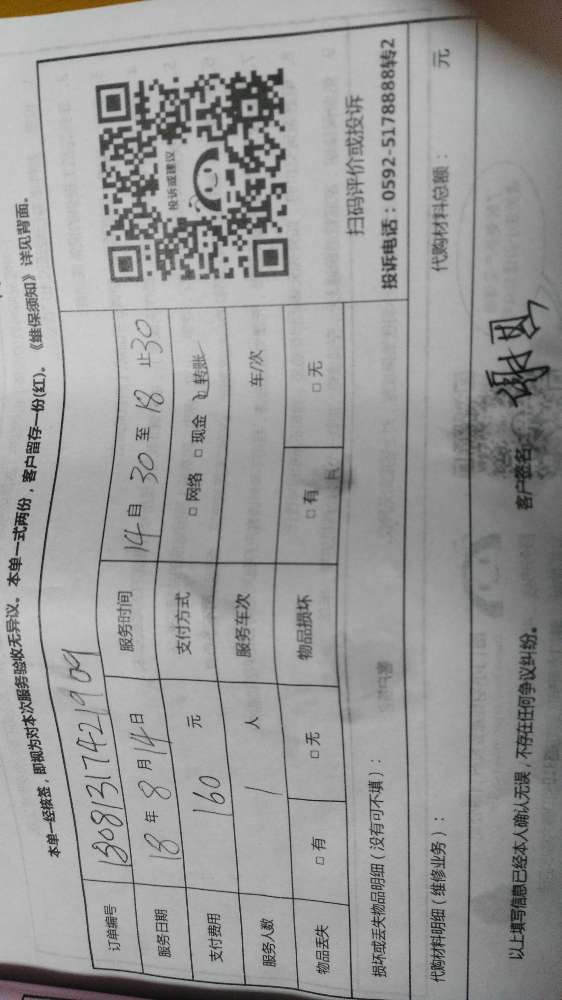 本单一经核签，即视为对本次服务验收无异议。本单一式两份，客户留存一份(红)。《维保须知》详见背面。
订单编号 18081317421909
服务日期 18 年 8 月 14 日 服务时间 14 自 30 至 18 止 30
支付费用 160 元 支付方式 □ 网络 □ 现金 ☑ 转账
服务人数 1 人 服务车次 车/次
物品丢失 □ 有 □ 无 物品损坏 □ 有 □ 无
投诉或建议
扫码评价或投诉
投诉电话：0592-5178888转2
损坏或丢失物品明细（没有可不填）：
代购材料明细（维修业务）： 代购材料总额： 元
以上填写信息已经本人确认无误，不存在任何争议纠纷。 客户签名：